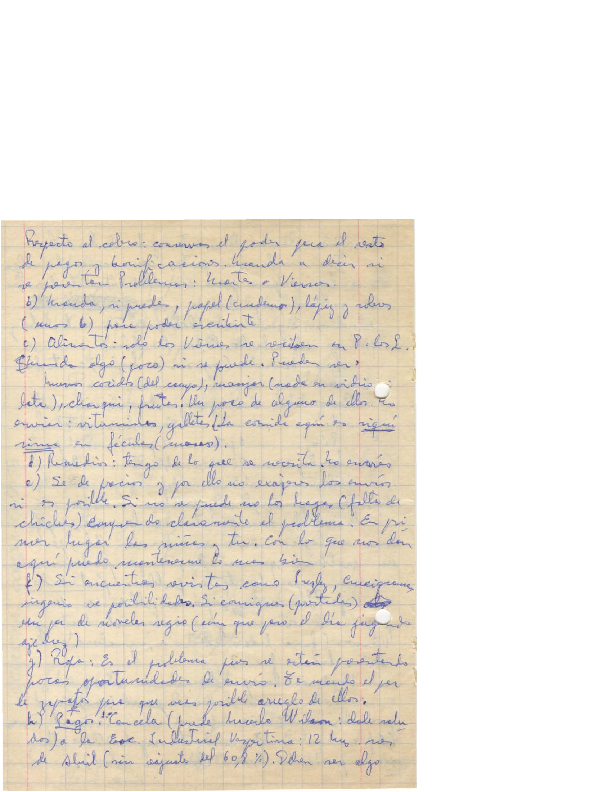 Respecto al cobro: conservas el poder para el resto
de pagos y bonificaciones. Manda a decir si
se presentan Problemas: Martes o Viernes.
b) Manda, si puedes, papel (cuaderno), lápiz y sobres
(unos 6) para poder escribirte
c) Alimentos: sólo los Viernes se reciben en P. los L.
algo (poco) si se puede. Pueden ser:
huevos cocidos (del campo), manjar (nada en vidrio ni
lata), charqui, frutas. Un poco de alguno de ellos. No
enviar: vitaminas, galletas. La comida aquí es riquí
sima en féculas (masas).
d) Remedios: tengo de lo que se necesita. No envíes
e) Se de precios y por ello no exajeres los envíos
si es posible. Si no se puede no los hagas (falta de
chiches) comprendo claramente el problema. En pri-
mer lugar las niñas y tu. Con lo que nos dan
aquí puedo mantenerme lo mas bien
f) Si encuentras revistas como Puzle, Crucigramas,
ingenio ve posibilidades. Si consigues (prestadas)
un par de novelas (aún que paso el día jugando
ajedrez)
g) Ropa: Es el problema pues se están presentando
pocas oportunidades de envío. Te mando el par
de zapatos por que veas posible arreglo de ellos.
h) Pagos: Cancela (puede hacerlo Wilson: dale
a la Esc. Industrial Vespertina: 12 hrs. mes
de Abril (sin reajuste del 60, %). Deben ser algo